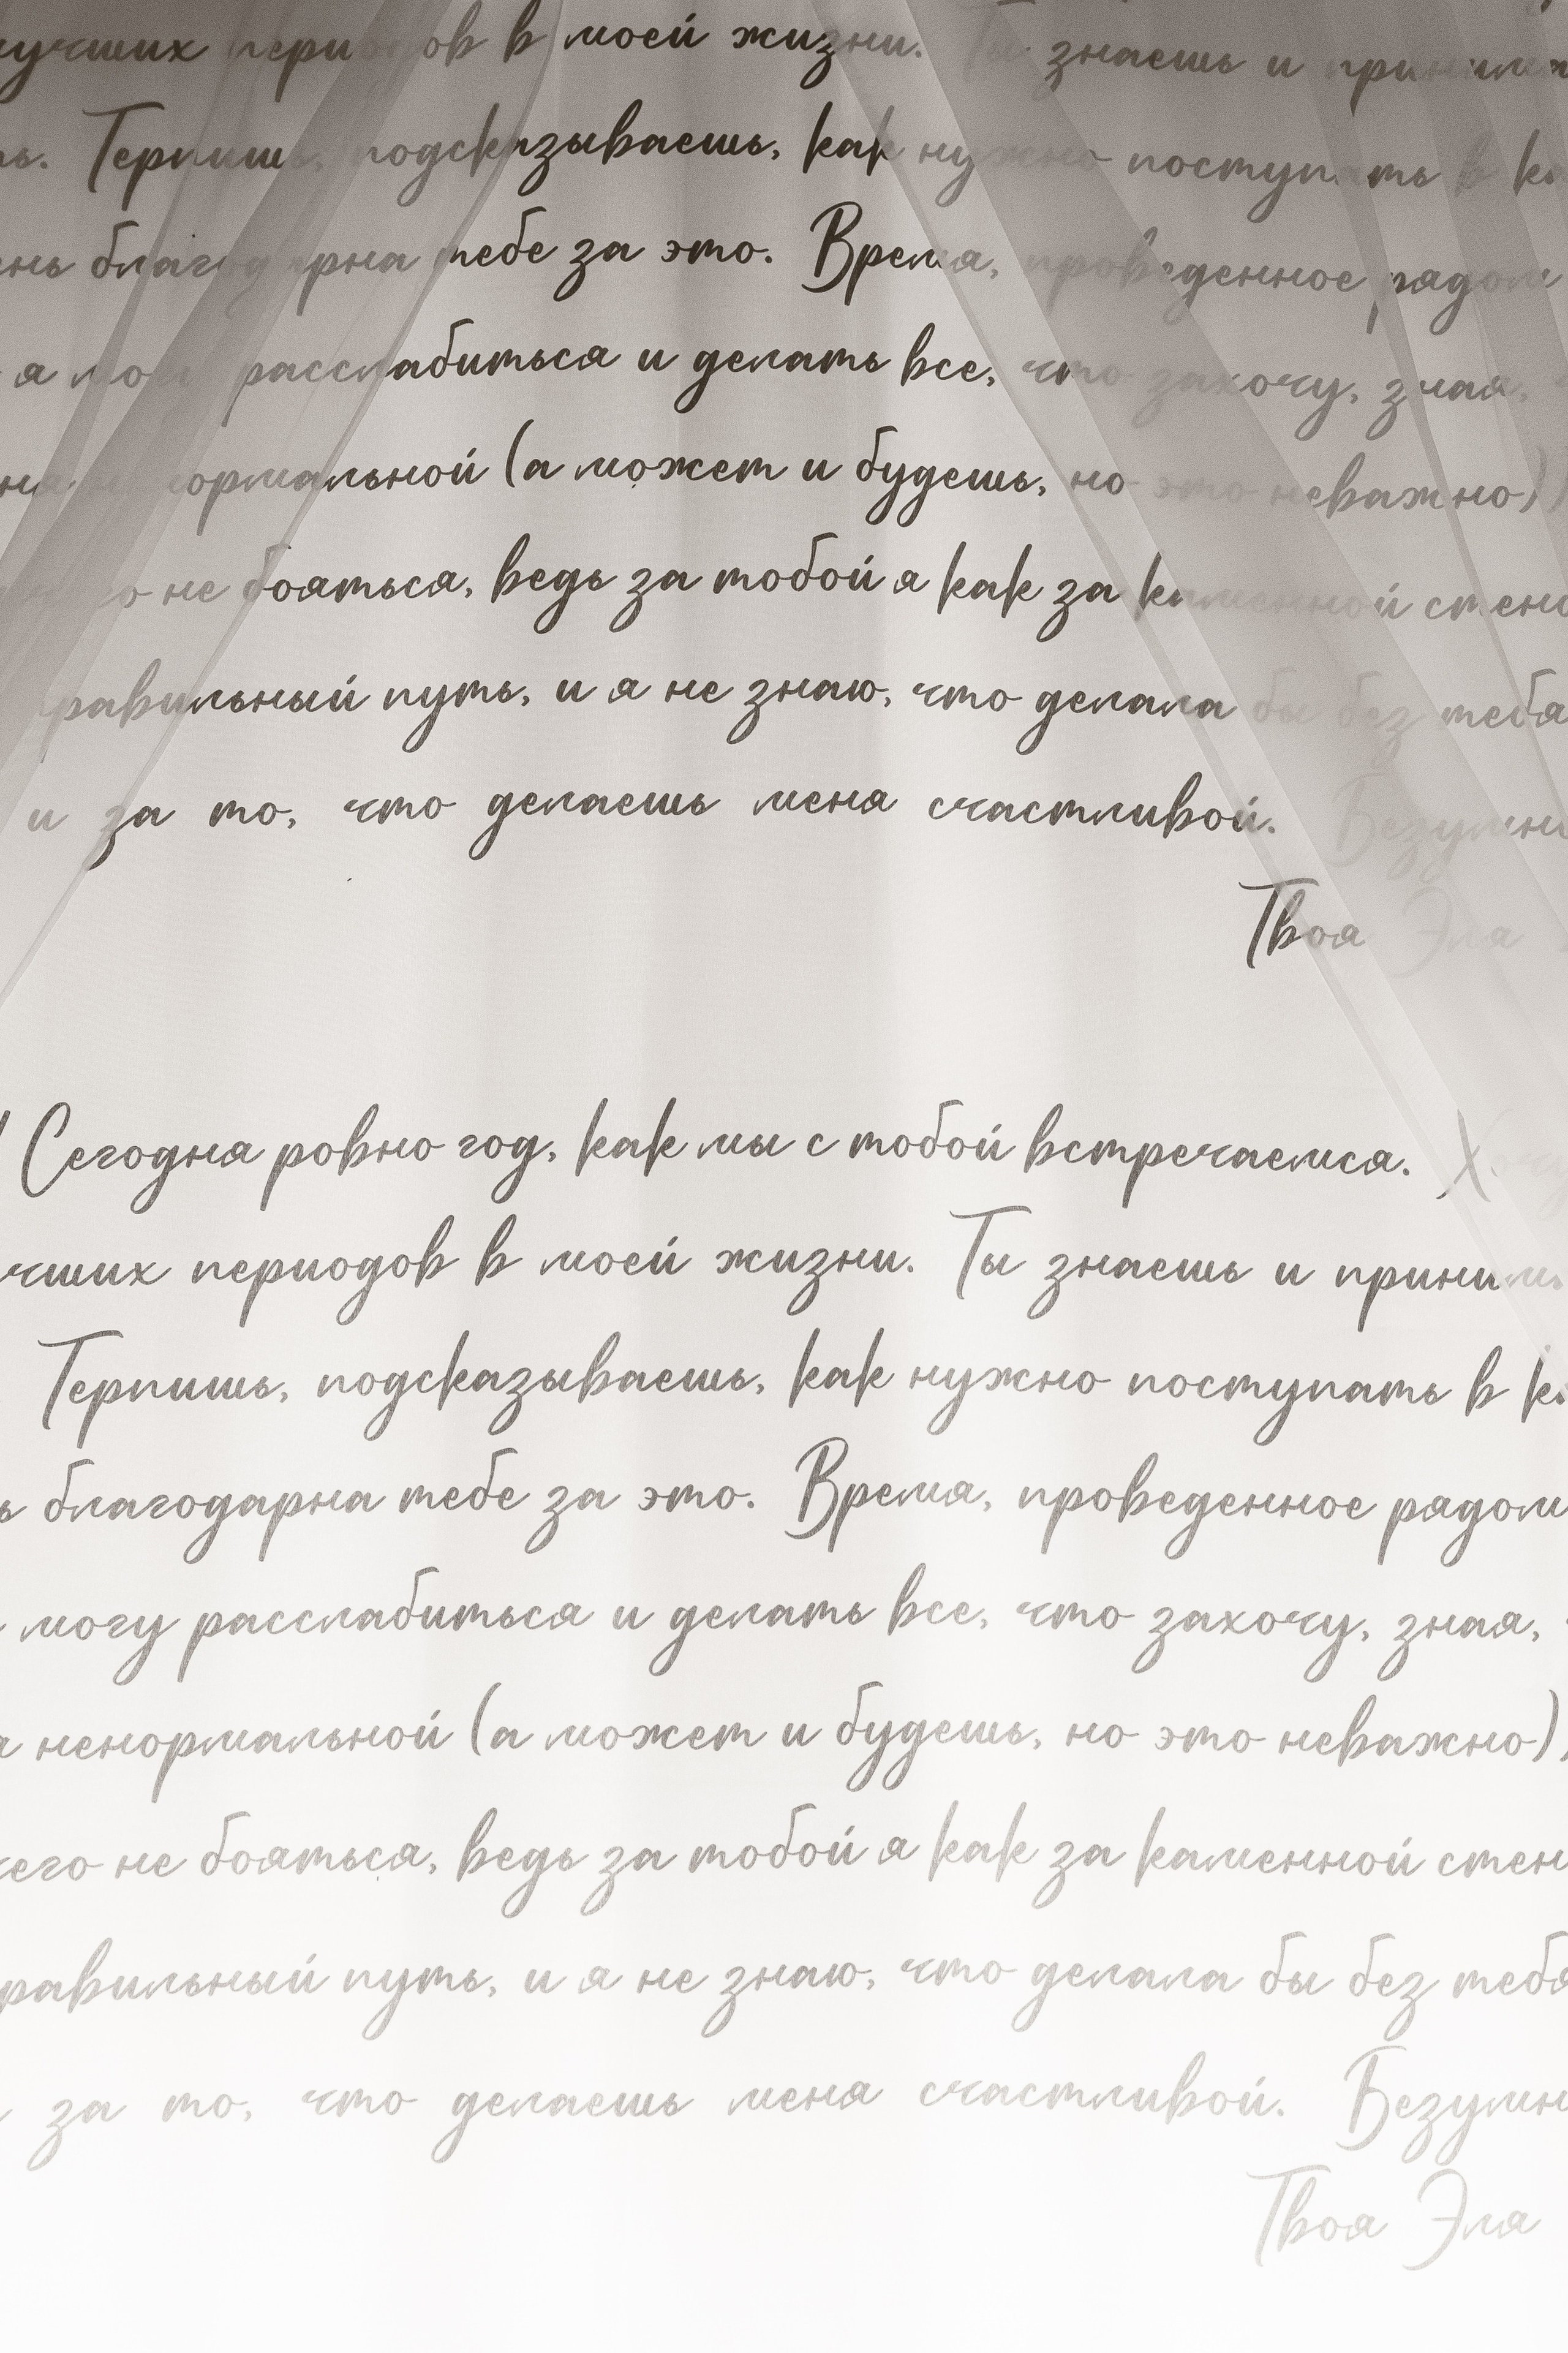 лучших периодов в моей жизни. Ты знаешь и принима
ть. Терпишь, подсказываешь, как нужно поступать в ка
ень благодарна тебе за это. Время, проведенное рядом
я могу расслабиться и делать все, что захочу, зная,
на ненормальной (а может и будешь, но это неважно)
чего не бояться, ведь за тобой я как за каменной стено
равильный путь, и я не знаю, что делала бы без тебя
и за то, что делаешь меня счастливой. Безумн
Твоя Эла
! Сегодня ровно год, как мы с тобой встречаемся. Хочу
чших периодов в моей жизни. Ты знаешь и приним
Терпишь, подсказываешь, как нужно поступать в ка
ь благодарна тебе за это. Время, проведенное рядом
могу расслабиться и делать все, что захочу, зная,
а ненормальной (а может и будешь, но это неважно),
чего не бояться, ведь за тобой я как за каменной стен
равильный путь, и я не знаю, что делала бы без тебя
за то, что делаешь меня счастливой. Безумн
Твоя Эла